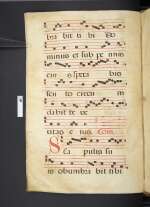 bra bit ti bi Do
minus et sub pe n
cm s pes bis
scu to circu m
dabit te ve
ritas e ius
Sca pulis su
is obumbra bit tibi